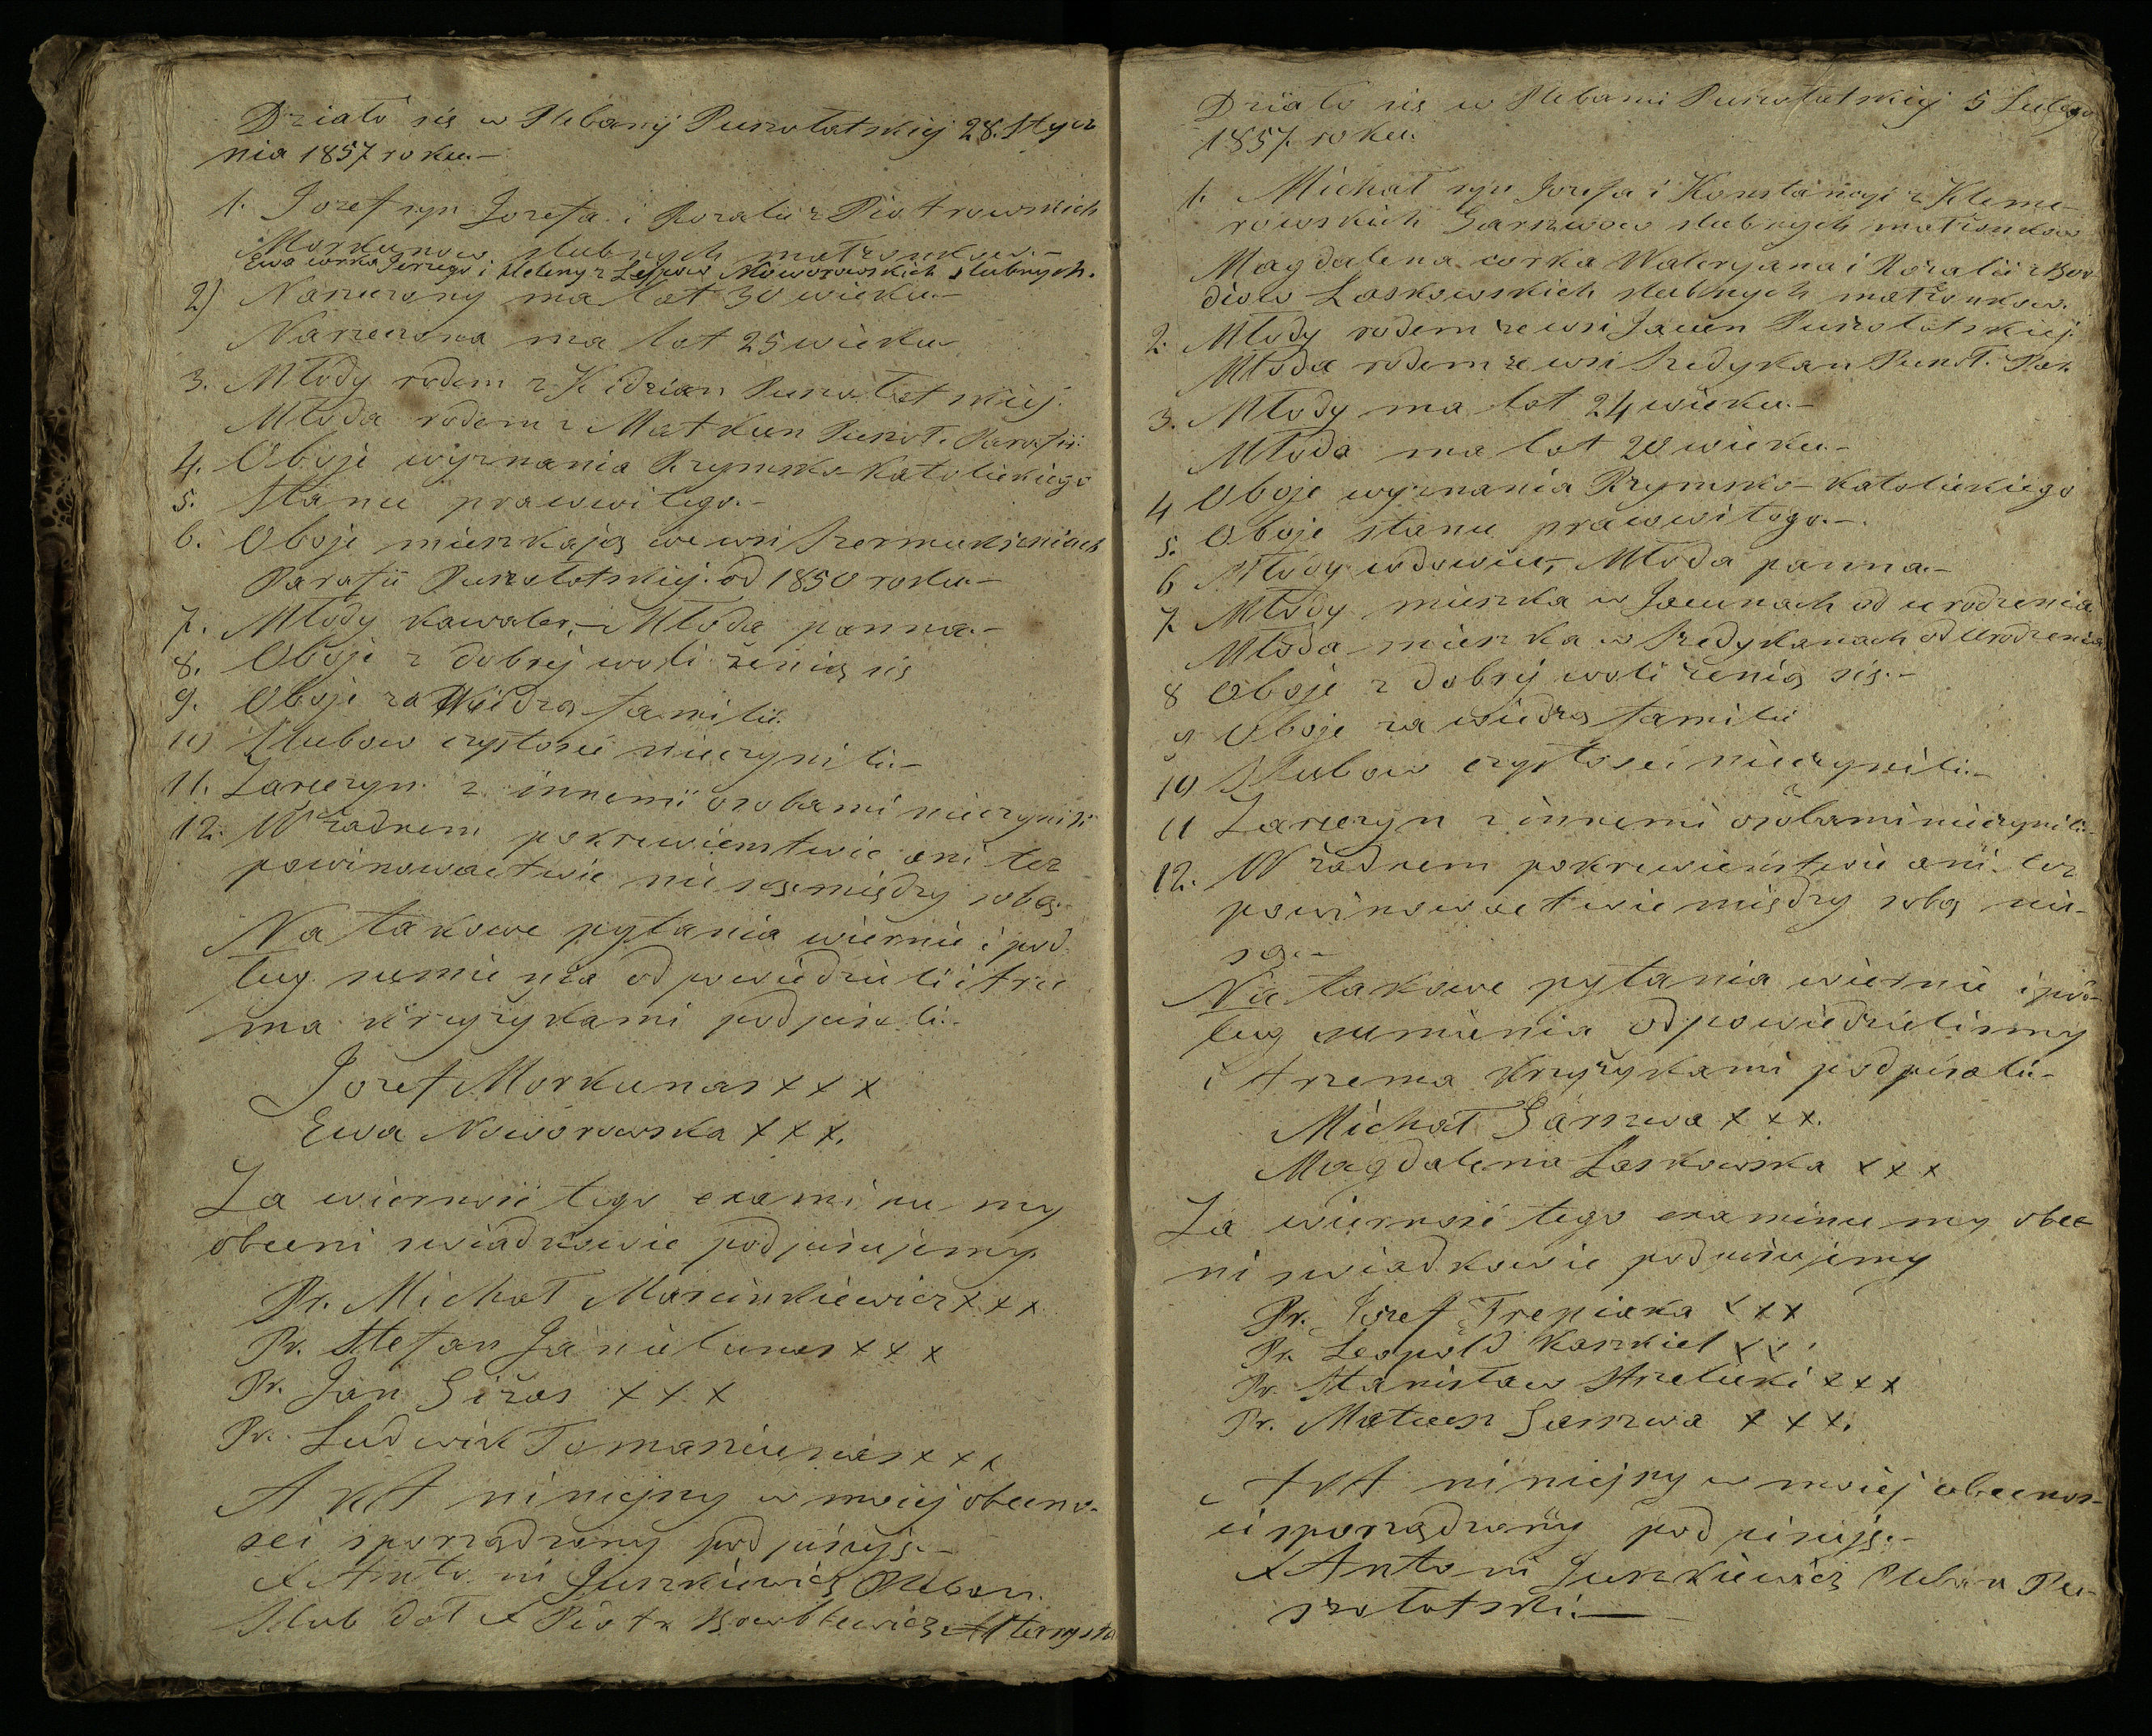 Działo się w Plebanij Puszołatskiej 28. Stycz
nia 1857 roku.-
1. Jozef syn Jozefa i Rozalii z Piotrowskich
Morkunow slubnych małżonkow.-
Ewa corka Jerzego i Heleny z Noworowskich slubnych.
2) Narzeczony ma lat 30 wieku.-
Narzeczona ma lat 25 wieku
3. Młody rodem z Kidzian Puszołatskiej.
Młoda rodem z Matkun Puszoł. Parafii
4. Oboje wyznania Rzymsko-Katolickiego
5. Stanu prawowitego.-
6. Oboje mieszkają we wsi
Parafii Puszołotskiej. od 1850 roku.-
7. Młody kawaler,- Młoda panna.-
8. Oboje z dobrej woli żenią się
9. Oboje za Wiedzą familii.
10 Slubow czystosci nieczynili.-
11. Zaręczyn z innemi osobami nieczynili
12. W żadnem pokrewienstwie ani też
powinowactwie nie są między sobą.-
Na takowe pytania wiernie i pod
ług sumienia odpowiedzieli i trze
ma krzyżykami podpisali.-
Jozef Morkunas x x x
Ewa Noworowska x x x.
Za wiernosć tego examinu my
obecni swiadkowie podpisujemy
Pr. Michał Marcinkiewicz x x x
Pr. Stefan Janielunas x x x
Pr. Jan Giżas x x x
Pr. Ludwik Tomaszunas x x x
Akt niniejszy w mojej obecno-
sci sporządzony podpisuję.-
X Antoni Juszkiewicz Pleban.
Slub dał X Piotr Altarysta
Działo się w Plebanii Puszołatskiej 5 Lutego
1857. roku.
1. Michał syn Jozefa i Konstancyi z Kleme-
rowskich Garszwow slubnych małżonkow
Magdalena corka Waleryana i Rozalii z Bor
diow Laskowskich slubnych małżonkow.
2. Młody rodem ze wsi Jacun Puszołotskiej.
Młoda rodem ze wsi Szedykan Puszoł. Par.
3. Młody ma lat 24 wieku.-
Młoda ma lat 20 wieku.-
4 Oboje wyznania Rzymsko-Katolickiego
5. Oboje stanu prawowitego.-
6 Młody wdowiec, Młoda panna.-
7. Młody mieszka w Jacunach od urodzenia
Młoda mieszka w Szedykanach od Urodzenia
8 Oboje z dobrej woli żenią się.-
9 Oboje za wiedzą familii
10 Slubow czystosci nieczynili.-
11 Zaręczyn z innemi osobami nieczynili.-
12. W żadnem pokrewieństwie ani też
powinowactwie między sobą nie-
są.-
Na takowe pytania wiernie i pod-
ług sumienia odpowiedzielismy
i trzema krzyżykami podpisali.-
Michał Garszwa x x x.
Magdalena Laskowska x x x
Za wiernosć tego examinu my obec
ni swiadkowie podpisujemy
Pr. Jozef Trepiaka x x x
Pr. Leopold Kaszkiel x x.
Pr. Stanisław Strzelicki x x x
Pr. Mateusz Garszwa x x x.
Akt niniejszy w mojej obecnos-
ci sporządzony podpisuję.-
X Antoni Juszkiewicz Pleban Pu-
szołotski.-